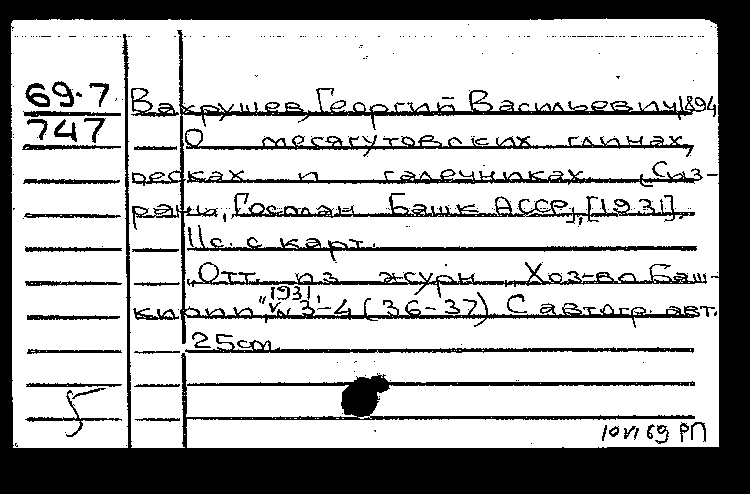 69.7
747
Вахрушев, Георгий Васильевич, 1894
О месягутовских глинах,
песках и галечниках. [Сиз-
рань, Госплан Башк АССР], [1931].
11с. с карт.
"Отт. из журн. "Хоз-во Баш-
кирии", 1931, № 3-4 (36-37). С автогр. авт.
25см.
10 VI 69 РП